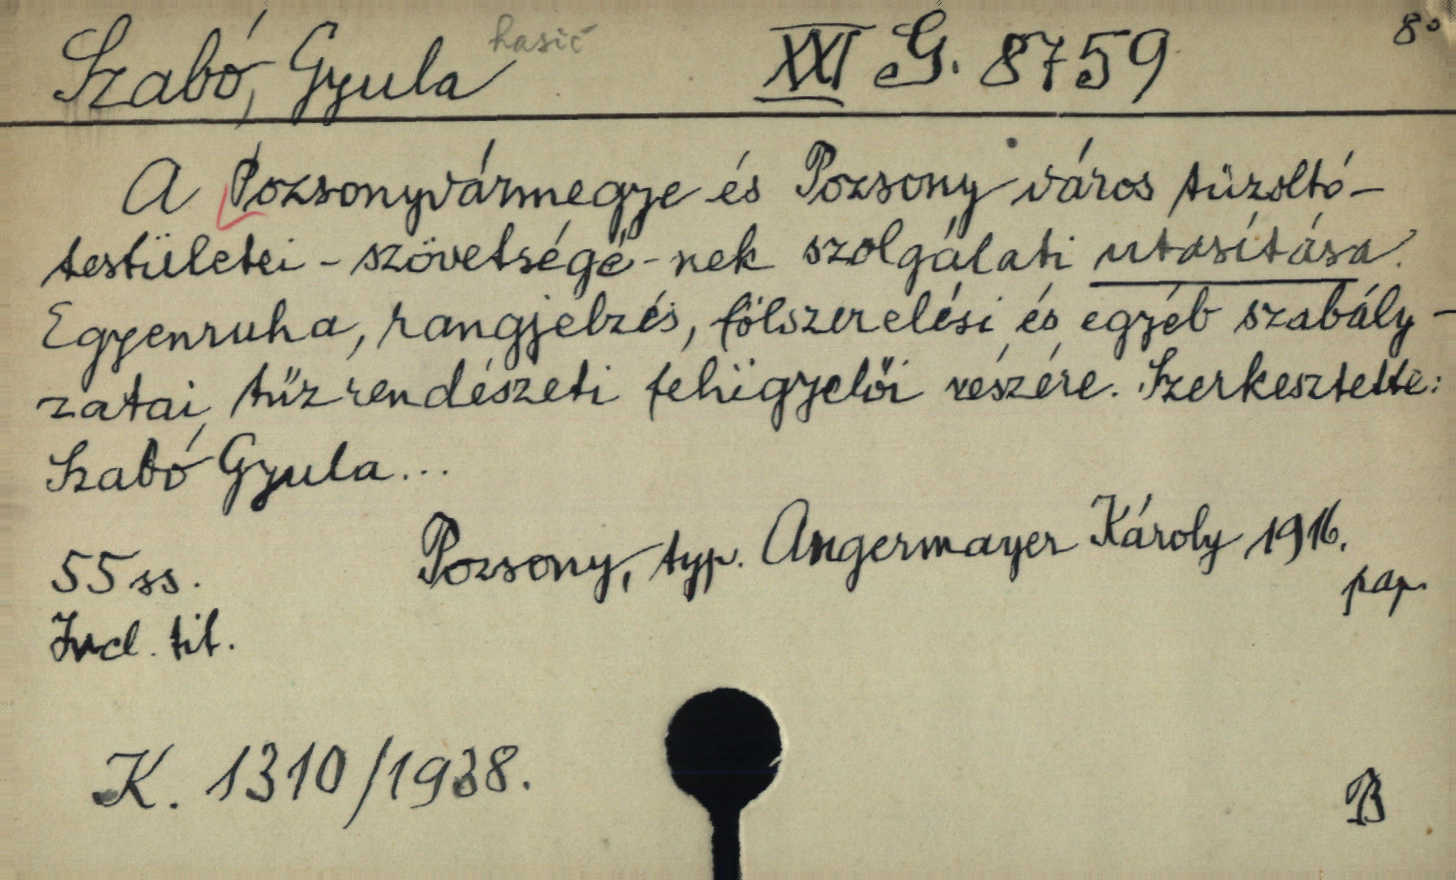 Szabó, Gyula hasič XXI G. 8759 8°
A Pozsonyvármegye és Pozsony város tűzoltó-
testületei-szövetségé-nek szolgálati utasítása.
Egyenruha, rangjelzés, fölszerelési és egyéb szabály-
zatai, tűzrendészeti felügyelői részére. Szerkesztette:
Szabó Gyula...
Pozsony, typ. Angermayer Károly 1916.
55 ss. pap.
Incl. tit.
K. 1310/1938.
B